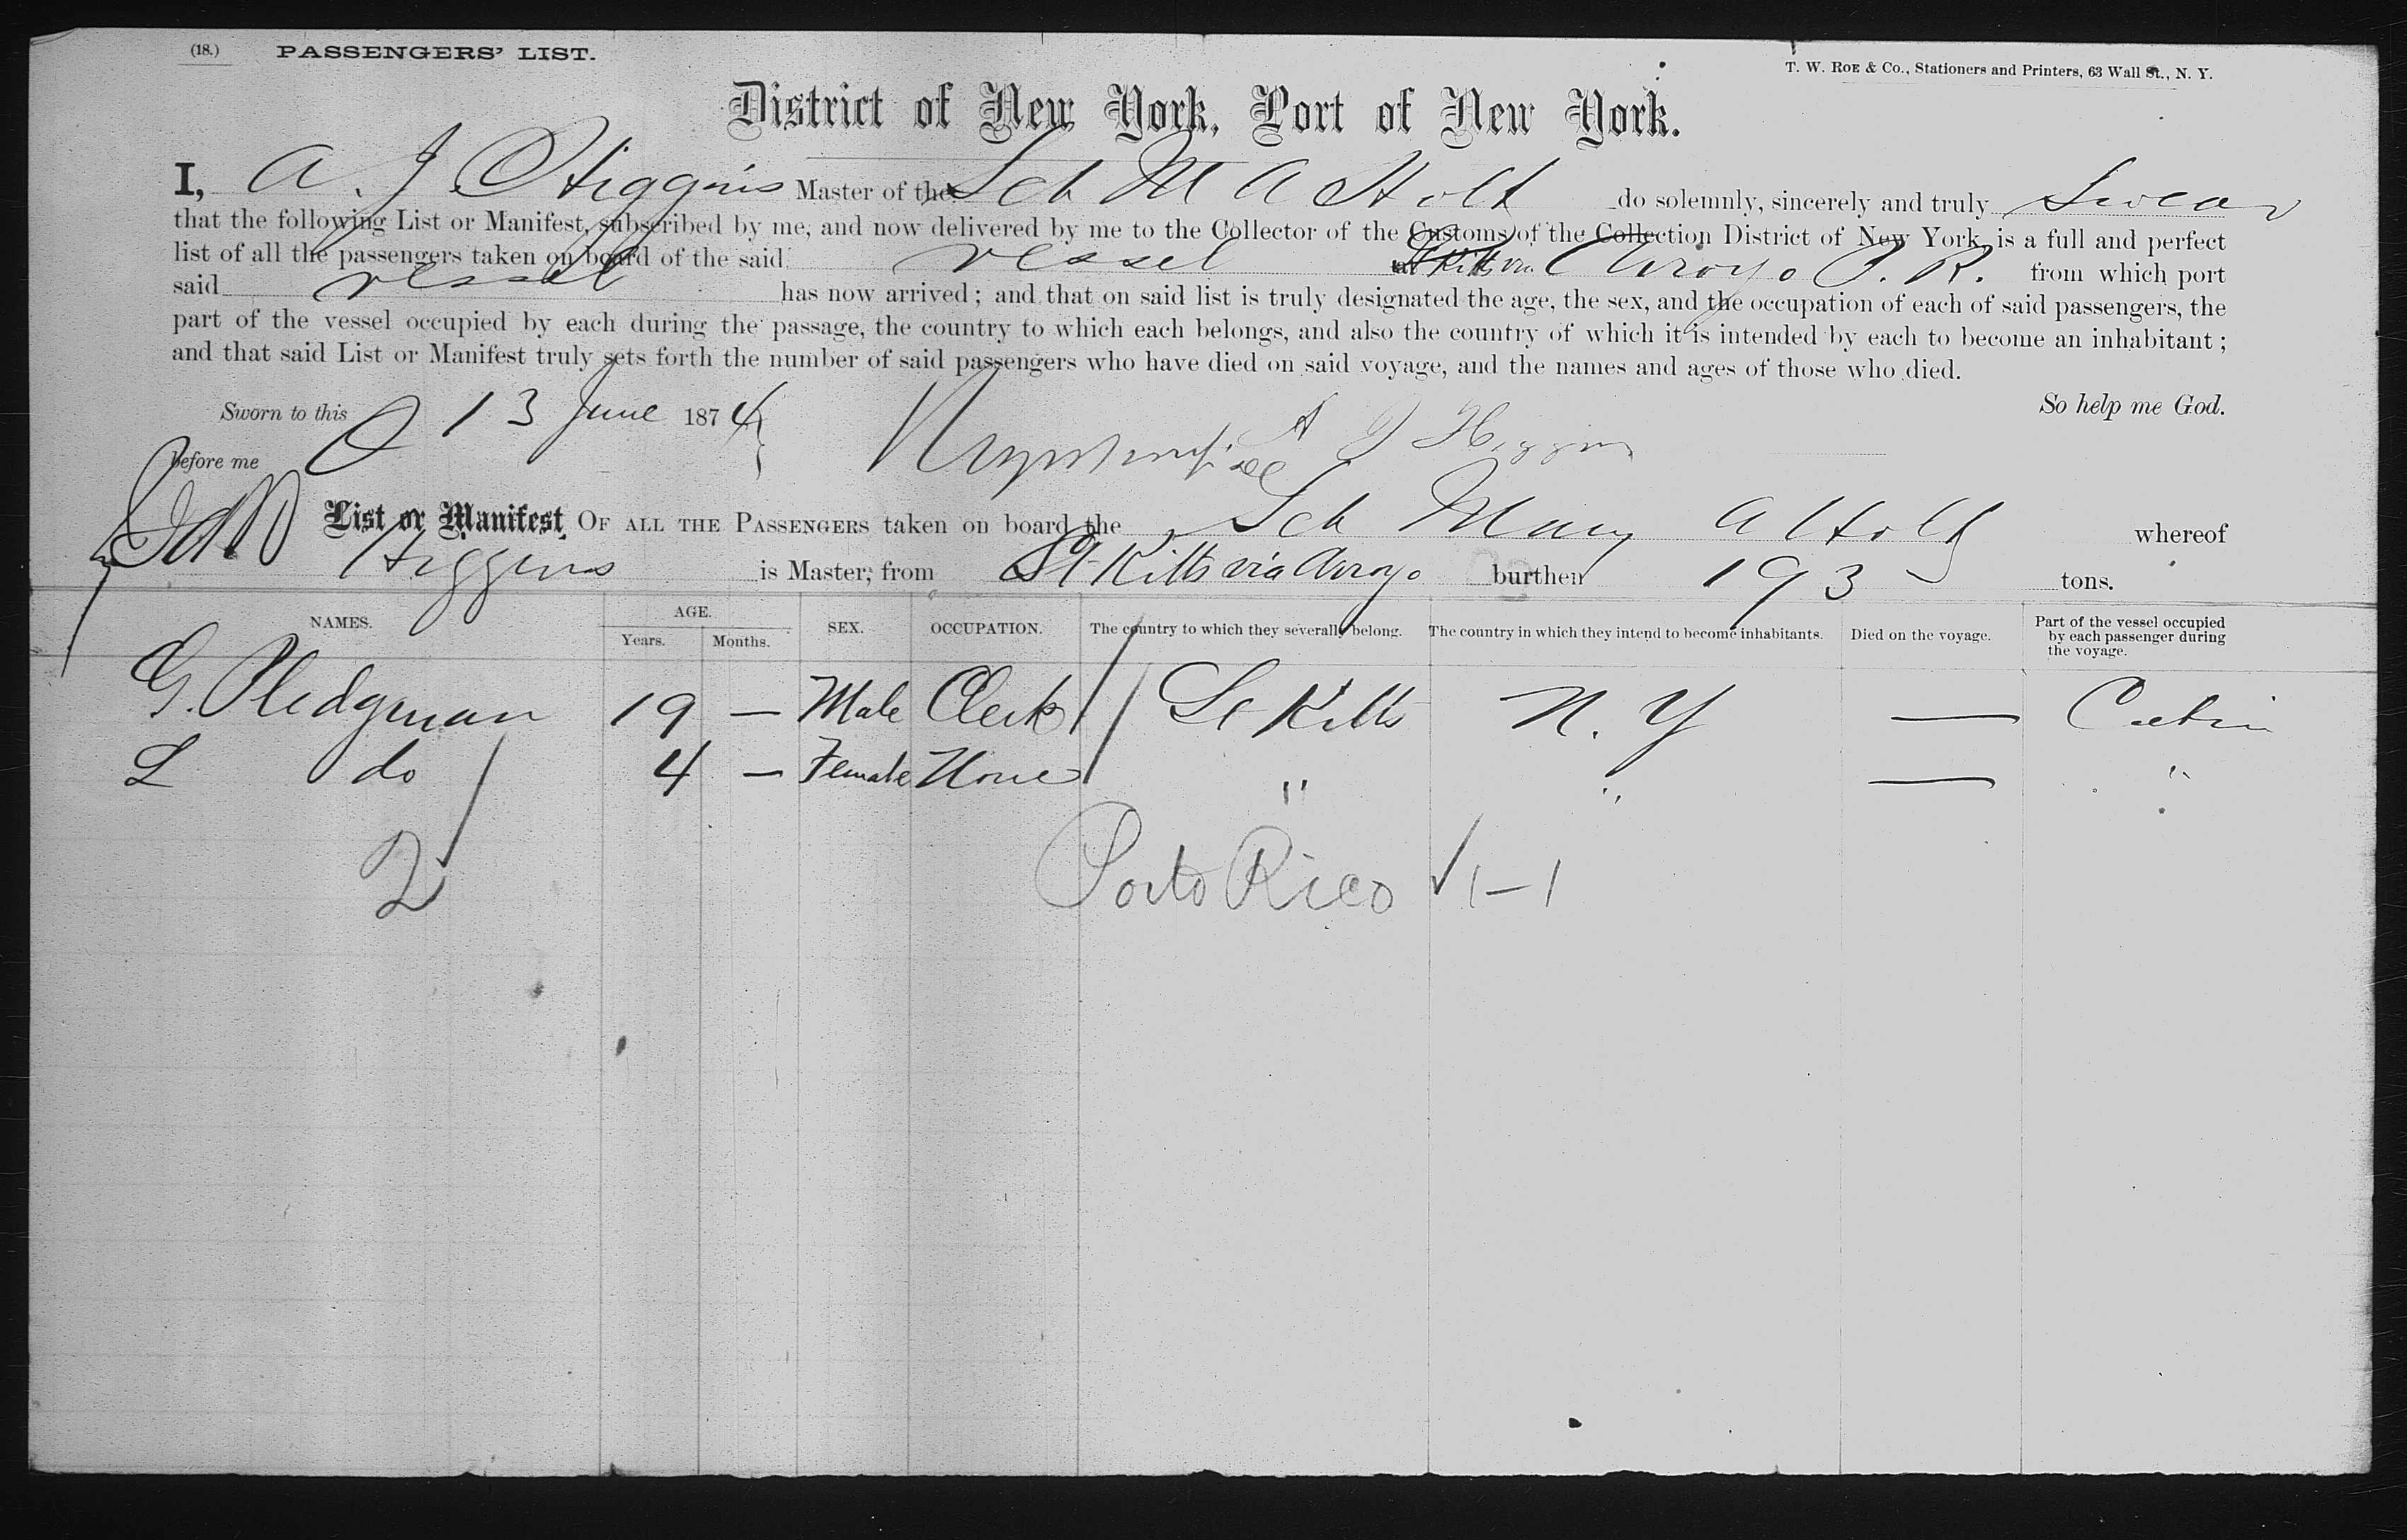 (18.) PASSENGERS' LIST.
T. W. ROE & CO., Stationers and Printers, 63 Wall St., N. Y.
District of New York, Port of New York.
I, A. J. Higgins Master of the Sch M A Holt do solemnly, sincerely and truly Swear
that the following List or Manifest, subscribed by me, and now delivered by me to the Collector of the Customs of the Collection District of New York, is a full and perfect
list of all the passengers taken on board of the said vessel at St Kitts via Arroyo P. R. from which port
said vessel has now arrived; and that on said list is truly designated the age, the sex, and the occupation of each of said passengers, the
part of the vessel occupied by each during the passage, the country to which each belongs, and also the country of which it is intended by each to become an inhabitant;
and that said List or Manifest truly sets forth the number of said passengers who have died on said voyage, and the names and ages of those who died.
So help me God.
Sworn to this 13 June 1874
A J Higgins
Before me
List or Manifest OF ALL THE PASSENGERS taken on board the Sch Mary A Holt whereof
Higgins is Master, from St Kitts via Arroyo burthen 193 tons.
NAMES. AGE. Years. Months. SEX. OCCUPATION. The country to which they severally belong. The country in which they intend to become inhabitants. Died on the voyage. Part of the vessel occupied by each passenger during the voyage.
G. Pledgman 19 — Male Clerk St Kitts N. Y — Cabin
L do 4 — Female None " " — "
2
Porto Rico √ 1–1